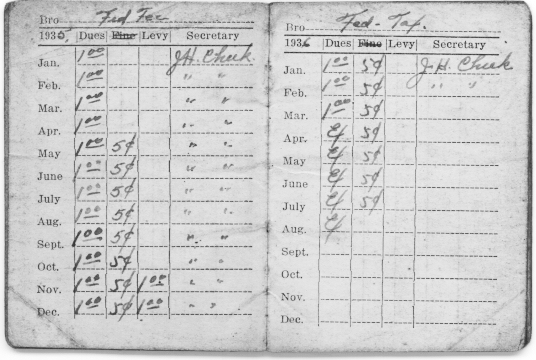 Bro Fed Tax
1935 Dues Fine Levy Secretary
Jan. 1.00 J.H. Cheek
Feb. 1.00 " "
Mar. 1.00 " "
Apr. 1.00 " "
May 1.00 5¢ " "
June 1.00 5¢ " "
July 1.00 5¢ " "
Aug. 1.00 5¢ " "
Sept. 1.00 5¢ " "
Oct. 1.00 5¢ " "
Nov. 1.00 5¢ 1.00 " "
Dec. 1.00 5¢ 1.00 " "
Bro Fed - Tax.
1936 Dues Fine Levy Secretary
Jan. 1.00 5¢ J.H. Cheek
Feb. 1.00 5¢ " "
Mar. 1.00 5¢
Apr. 5¢
May 5¢
June 5¢
July 5¢
Aug.
Sept.
Oct.
Nov.
Dec.